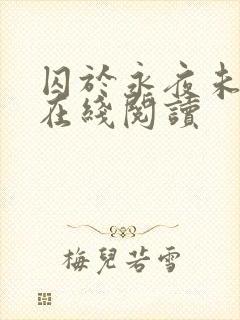 囚於永夜未
在綫閱讀
梅兒若雪